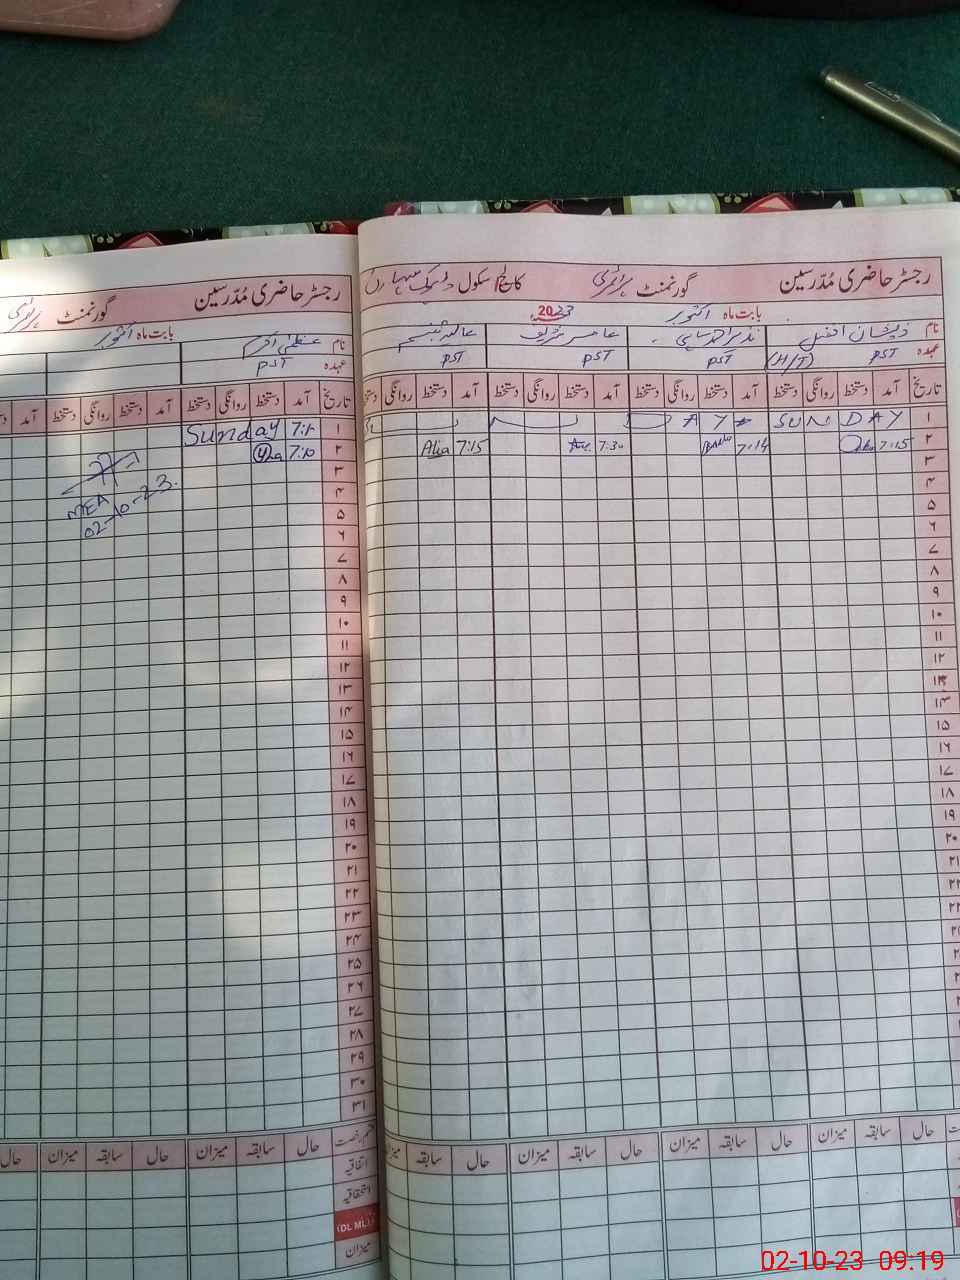 رجسٹر حاضری مُدّرسین گورنمنٹ پرائمری کالج/سکول
بابت ماہ اکتوبر 2023ء
نام ذیشان نذیر عامر شریف عالیہ تبسم
عہدہ PST (H/T) PST PST PST
تاریخ آمد دستخط روانگی دستخط آمد دستخط روانگی دستخط آمد دستخط روانگی دستخط آمد دستخط روانگی
۱ SUNDAY A Y
۲ 7:15 7:14 7:30 Alia 7:15
۳
۴
۵
۶
۷
۸
۹
۱۰
۱۱
۱۲
۱۳
۱۴
۱۵
۱۶
۱۷
۱۸
۱۹
۲۰
۲۱
۲۲
حال سابقہ میزان حال سابقہ میزان حال سابقہ میزان حال سابقہ میزان
رجسٹر حاضری مُدّرسین گورنمنٹ پرائمری
بابت ماہ اکتوبر
نام عظمیٰ
عہدہ PST
تاریخ آمد دستخط روانگی دستخط آمد دستخط روانگی دستخط آمد
۱ Sunday
۲ 7:10
۳
۴
۵
۶
۷
۸
۹
۱۰
۱۱
۱۲
۱۳
۱۴
۱۵
۱۶
۱۷
۱۸
۱۹
۲۰
۲۱
۲۲
۲۳
۲۴
۲۵
۲۶
۲۷
۲۸
۲۹
۳۰
۳۱
MEA
02-10-23.
قسم رخصت حال سابقہ میزان حال سابقہ میزان حال
اتفاقیہ
استحقاقیہ
(DL ML)
میزان
02-10-23 09:19